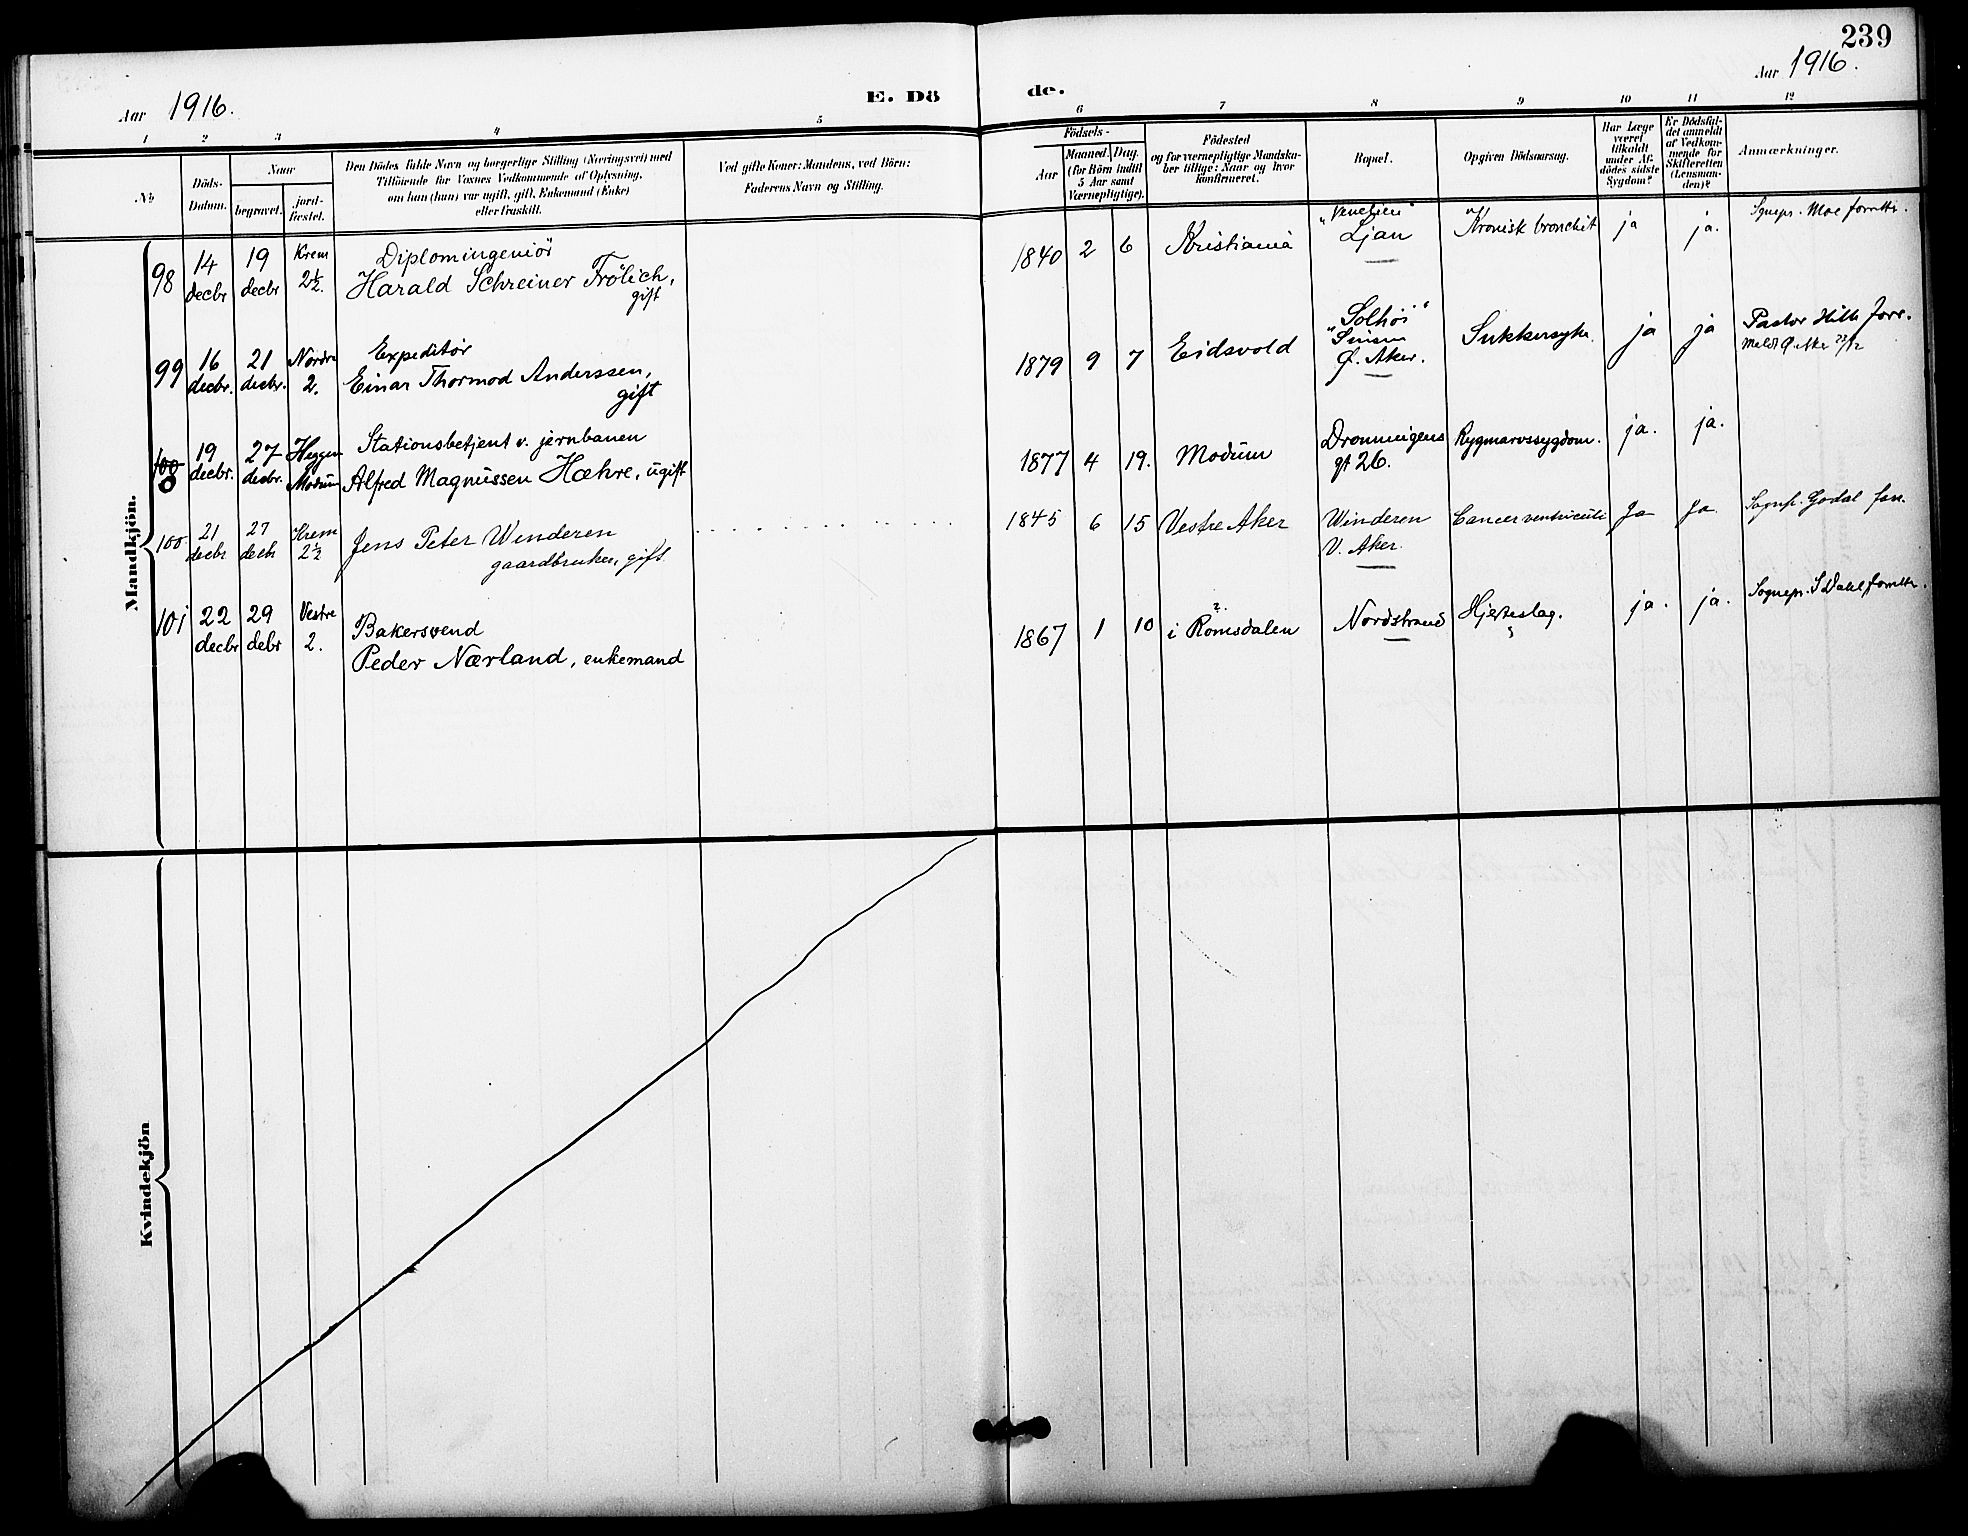 239
Aar 1916.
E. Dö
de.
Aar 1916.
1 2 3 4 5 6 7 8 9 10 11 12
No
Döds-
Datum.
Naar
begravet.
jord-
fæstet.
Den Dödes fulde Navn og borgerlige Stilling (Næringsvei) med
Tilföiende for Voxnes Vedkommende af Oplysning,
om han (hun) var ugift, gift, Enkemand (Enke)
eller fraskilt.
Ved gifte Koner: Mandens, ved Börn:
Faderens Navn og Stilling.
Födsels-
Aar
Maaned.
Dag.
(for Börn indtil
5 Aar samt
Værnepligtige).
Födested
og for værnepligtige Mandska-
ber tillige: Naar og hvor
konfirmeret.
Bopæl.
Opgiven Dödsaarsag.
Har Læge
været
tilkaldt
under Af-
dödes sidste
Sygdom?
Er Dödsfal-
det anmeldt
af Vedkom-
mende for
Skifteretten
(Lensman-
den)?
Anmærkninger.
Mandkjön.
98
14
decbr
19
decbr
Krem
2½.
Diplomingeniör
Harald Schreiner Frölich,
gift
1840 2 6
Kristiania
Ljan
Kronisk bronchit
ja
ja.
Sognepr. Moe forrettr.
99
16
decbr.
21
decbr.
Nordre
2.
Expeditör
Einar Thormod Anderssen,
gift
1879 9 7
Eidsvold
"Solhöi"
Sinsen
Ø. Aker.
Sukkersyke
ja
ja
Pastor Hille forr.
Meldt Ø. Aker 22/12
100
0
19
decbr.
27
decbr.
Heggen
Modum
Stationsbetjent v. jernbanen
Alfred Magnussen Hæhre, ugift
1877 4 19.
Modum
Dronningens
gt 26.
Rygmarvssygdom.
ja.
ja.
100
21
decbr
27
decbr
Krem
2½
Jens Peter Winderen
gaardbruker, gift
1845 6 15
Vestre Aker
Winderen
V. Aker.
Cancer ventriculi
Ja
Ja.
Sognpr. Godal forr.
101
22
decbr
29
debr
Vestre
2.
Bakersvend
Peder Nærland, enkemand
1867 1 10
?
i Romsdalen
Nordstrand
Hjerteslag.
ja.
ja.
Sognepr. S Dahl forrettr.
Kvindekjön